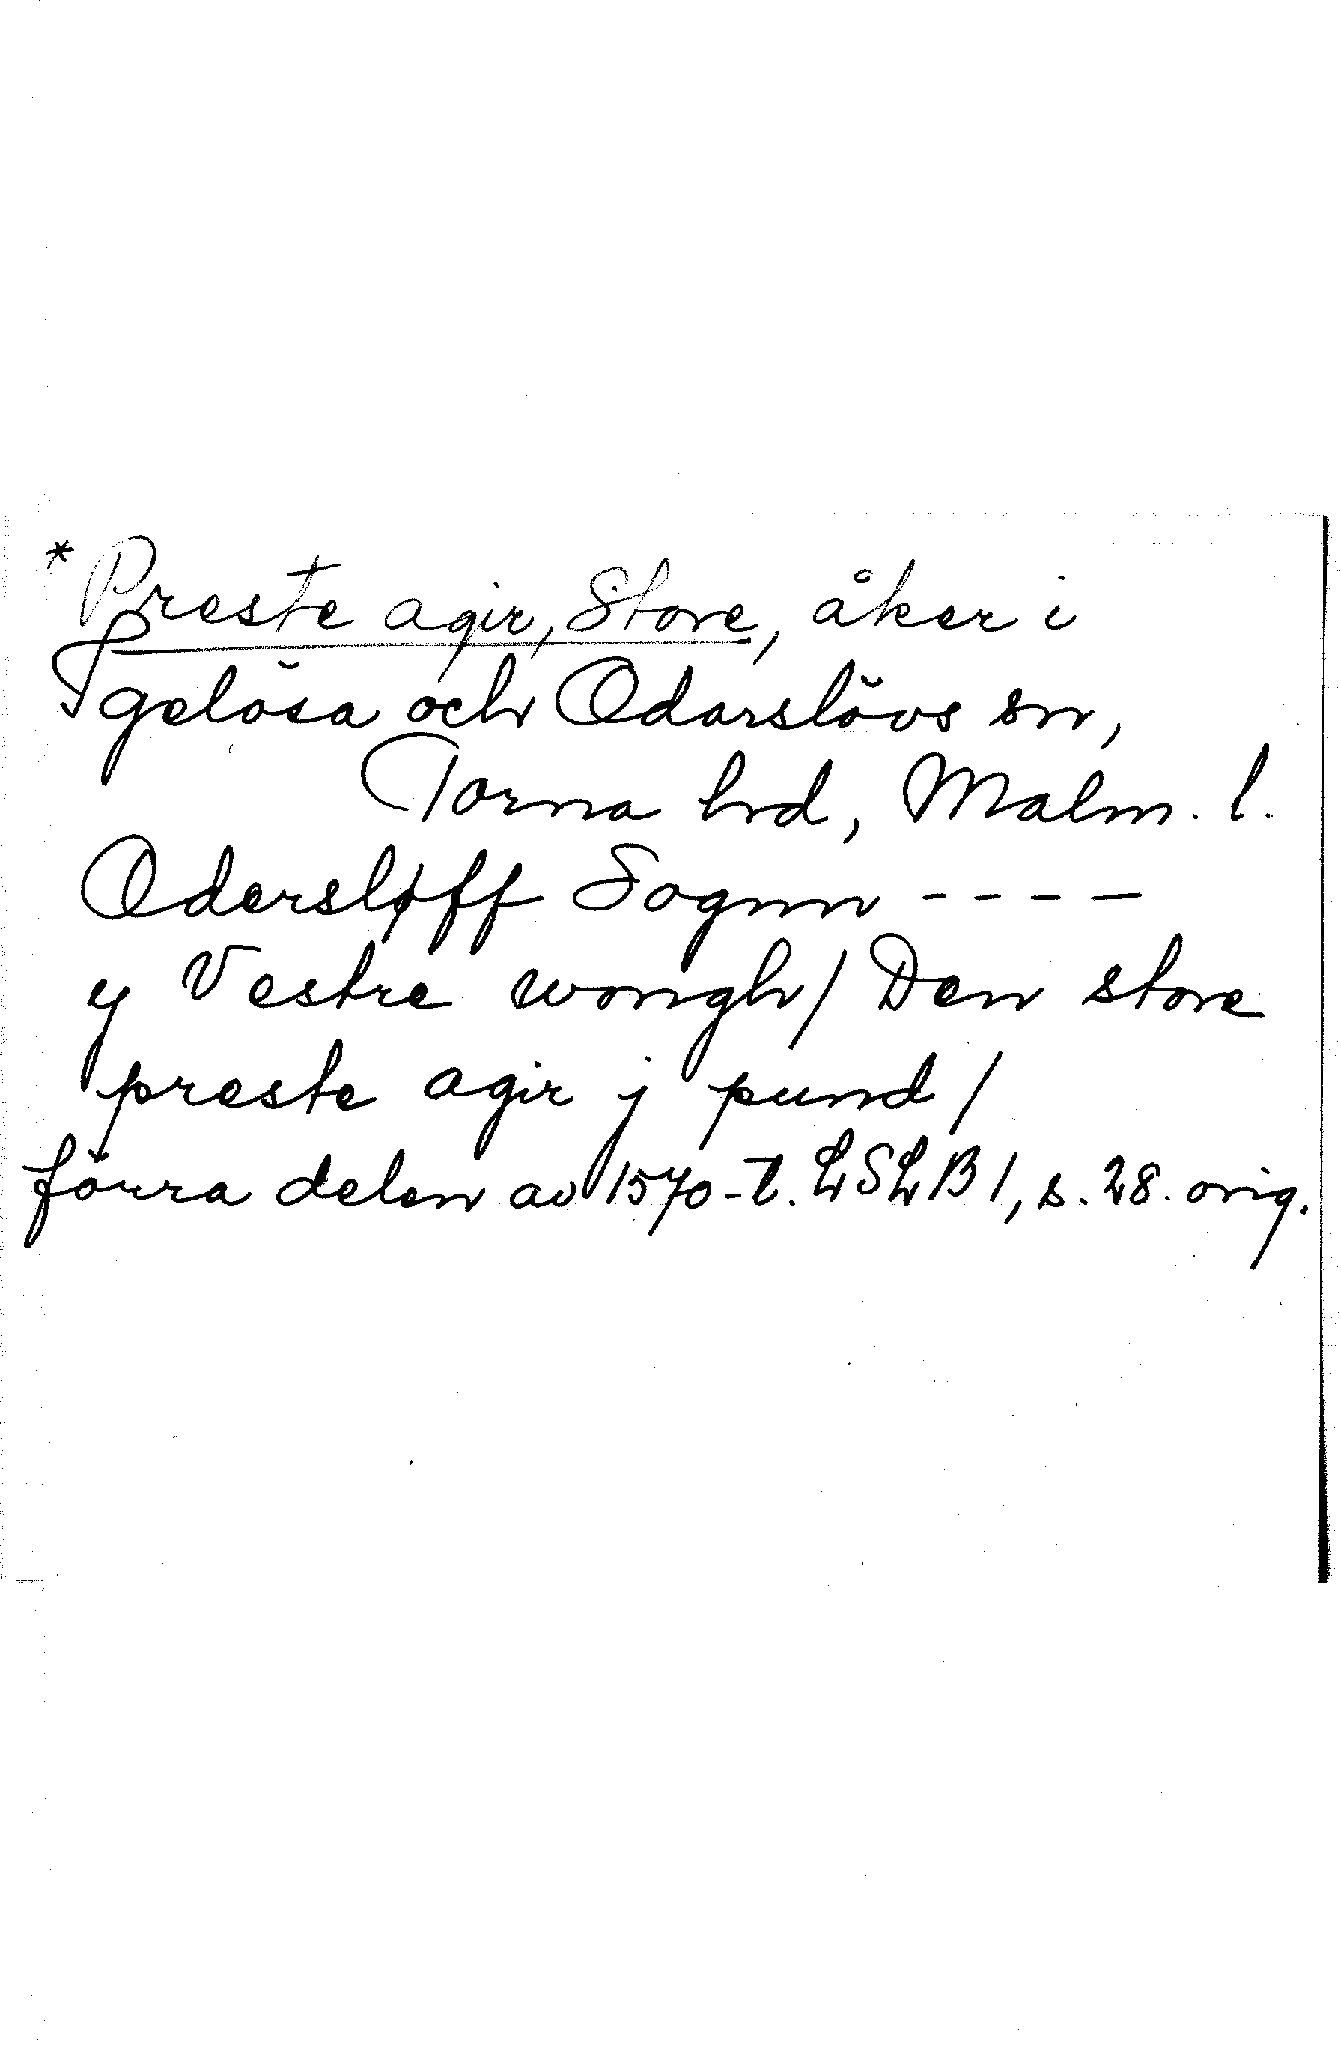 * Preste agir, Store, åker i
Igelösa och Odarslövs sn,
Torna hd, Malm. l.
Odersløff Sognn - - - -
y Vestre wongh / Den store
preste agir j pund /
förra delen av 1570-t. LSLB 1, s. 28. orig.